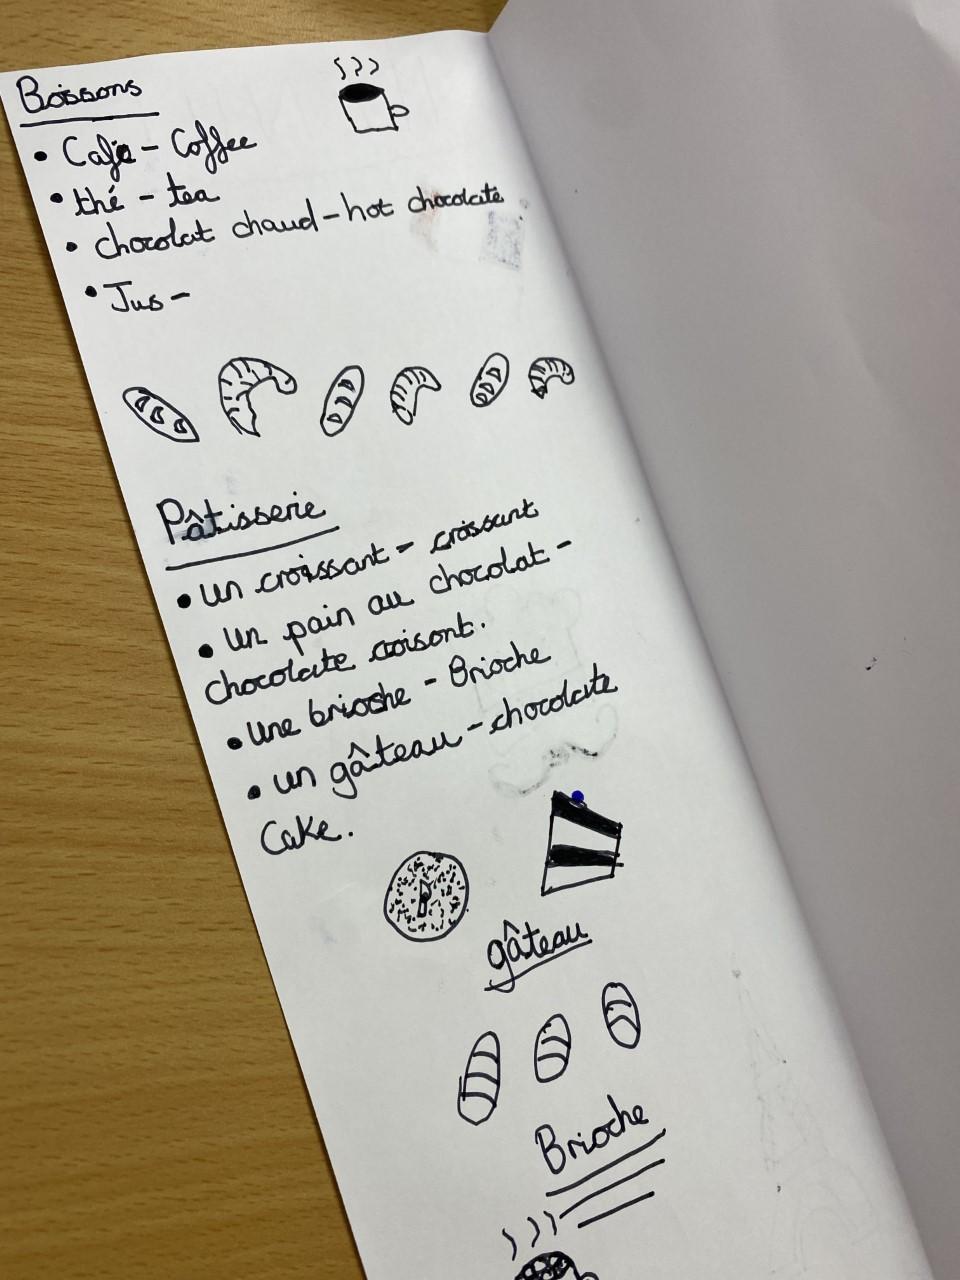 Boissons
• Cafe - Coffee
• thé - tea
• chocolat chaud - hot chocolate
• Jus -
Pâtisserie
• un croissant - croissant
• un pain au chocolat -
chocolate croisont.
• une brioche - Brioche
• un gâteau - chocolate
Cake.
gâteau
Brioche